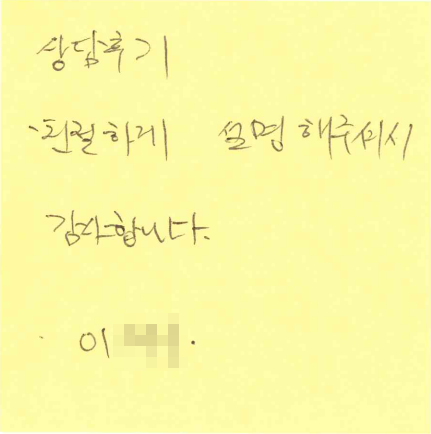 상담후기
친절하게 설명해주셔서
감사합니다.
이